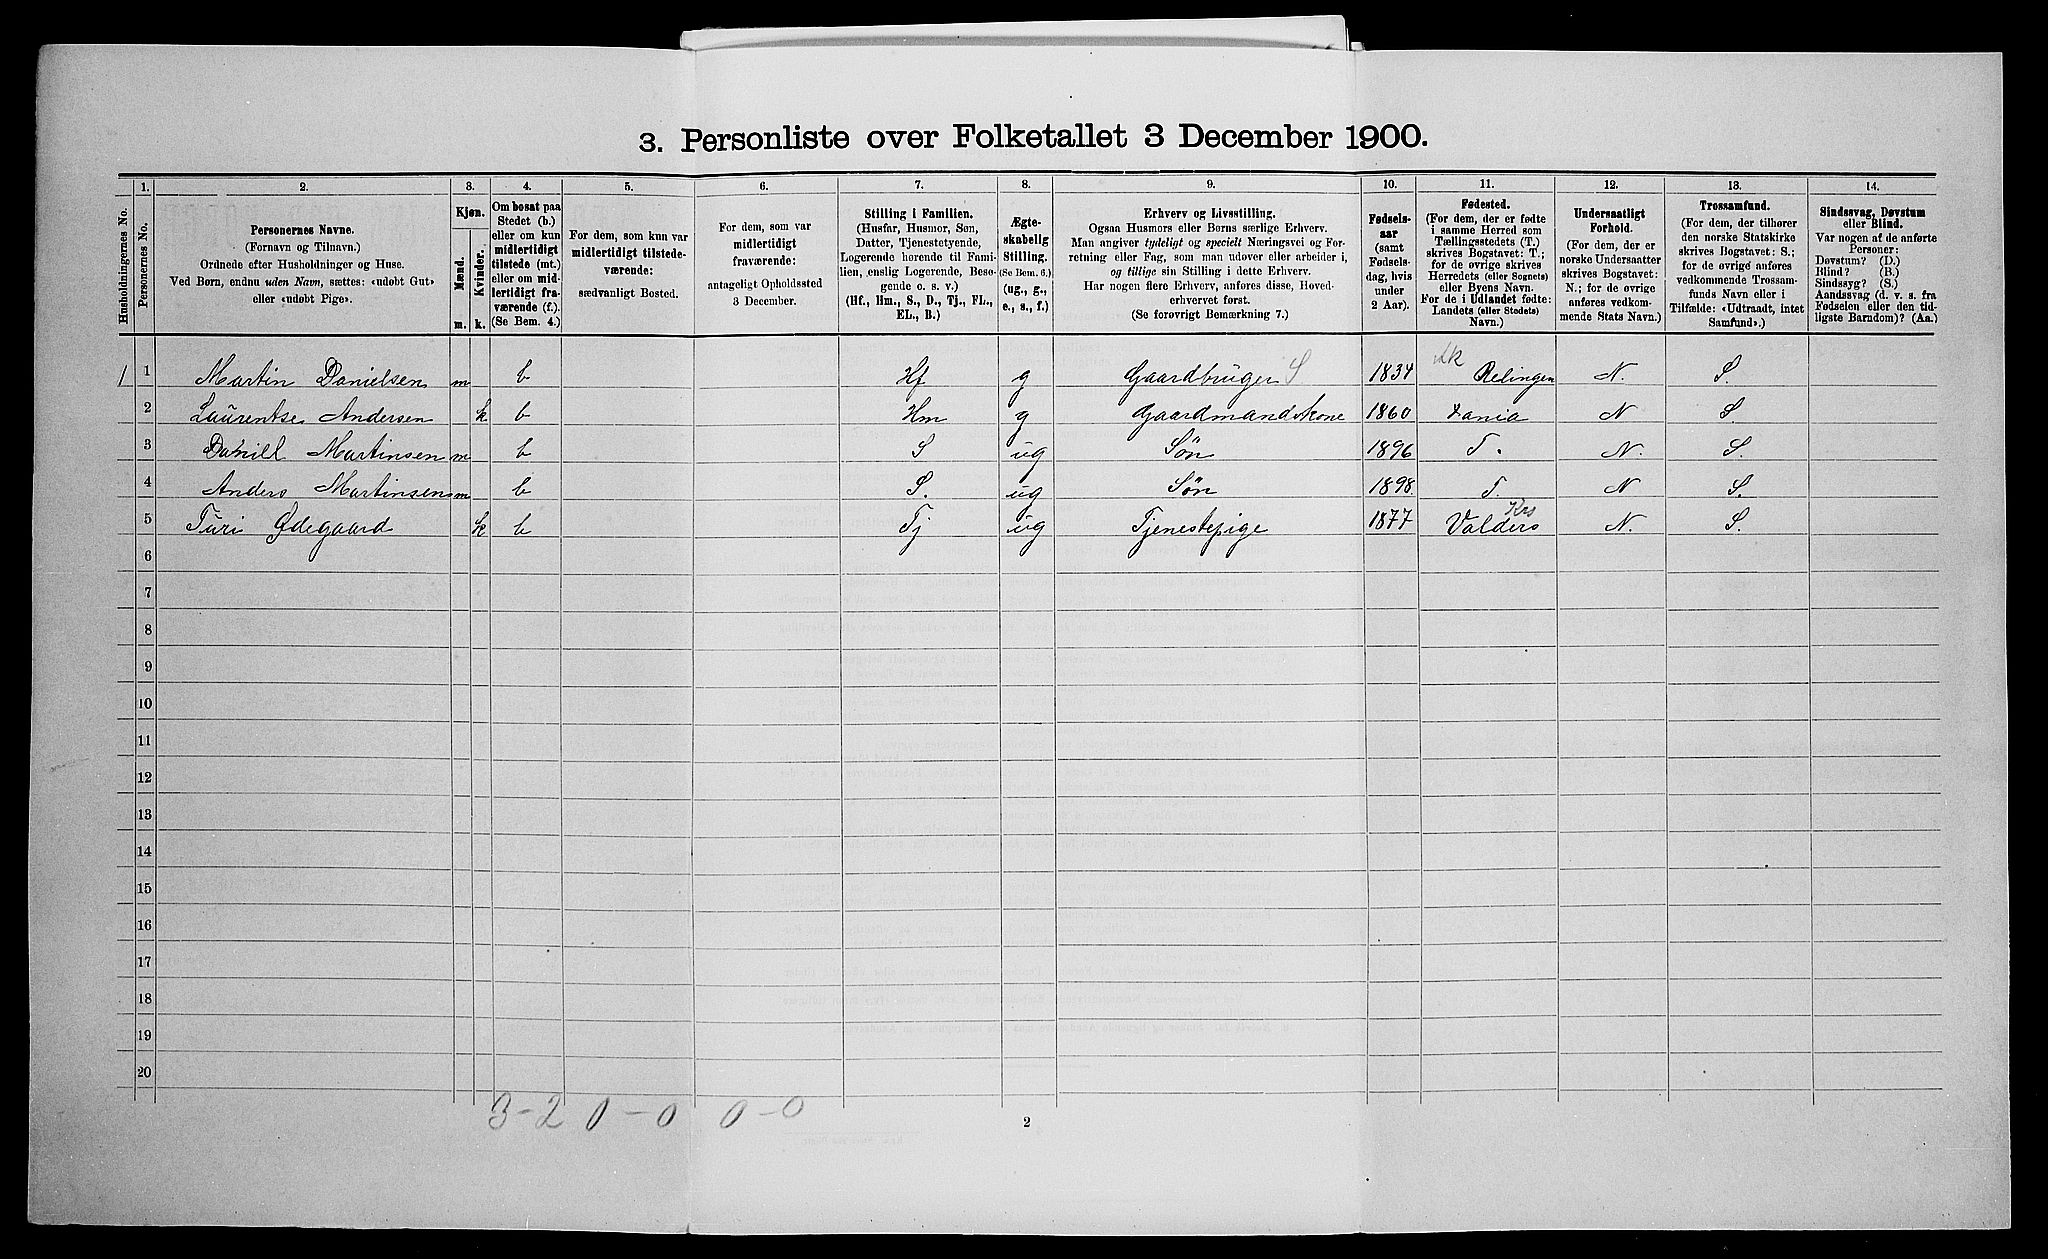 3. Personliste over Folketallet 3 December 1900.
1. 2. 3. 4. 5. 6. 7. 8. 9. 10. 11. 12. 13. 14.
Husholdningernes No.
Personernes No.
Personernes Navne.
(Fornavn og Tilnavn.)
Ordnede efter Husholdninger og Huse.
Ved Børn, endnu uden Navn, sættes: «udøbt Gut»
eller «udøbt Pige».
Kjøn.
Mænd.
Kvinder.
m. k.
Om bosat paa
Stedet (b.)
eller om kun
midlertidigt
tilstede (mt.)
eller om mid-
lertidigt fra-
værende (f.).
(Se Bem. 4.)
For dem, som kun var
midlertidigt tilstede-
værende:
sædvanligt Bosted.
For dem, som var
midlertidigt
fraværende:
antageligt Opholdssted
3 December.
Stilling i Familien.
(Husfar, Husmor, Søn,
Datter, Tjenestetyende,
Logerende hørende til Fami-
lien, enslig Logerende, Besø-
gende o. s. v.)
(Hf., Hm., S., D., Tj., FL.,
EL., B.)
Ægte-
skabelig
Stilling.
(Se Bem. 6.)
(ug., g.,
e., s., f.)
Erhverv og Livsstilling.
Ogsaa Husmors eller Børns særlige Erhverv.
Man angiver tydeligt og specielt Næringsvei og For-
retning eller Fag, som man udøver eller arbeider i,
og tillige sin Stilling i dette Erhverv.
Har nogen flere Erhverv, anføres disse, Hoved-
erhvervet først.
(Se forøvrigt Bemærkning 7.)
Fødsels-
aar
(samt
Fødsels-
dag, hvis
under
2 Aar).
Fødested.
(For dem, der er fødte
i samme Herred som
Tællingsstedets (T.)
skrives Bogstavet: T.;
for de øvrige skrives
Herredets (eller Sognets)
eller Byens Navn.
For de i Udlandet fødte:
Landets (eller Stedets)
Navn.)
Undersaatligt
Forhold.
(For dem, der er
norske Undersaatter
skrives Bogstavet:
N.; for de øvrige
anføres vedkom-
mende Stats Navn.)
Trossamfund.
(For dem, der tilhører
den norske Statskirke
skrives Bogstavet: S.;
for de øvrige anføres
vedkommende Trossam-
funds Navn eller i
Tilfælde: «Udtraadt, intet
Samfund».)
Sindssvag, Døvstum
eller Blind.
Var nogen af de anførte
Personer:
Døvstum? (D.)
Blind? (B.)
Sindssyg? (S.)
Aandssvag (d. v. s. fra
Fødselen eller den tid-
ligste Barndom)? (Aa.)
1 1 Martin Danielsen m b Hf g Gaardbruger S. 1834 Relingen N. S.
2 Laurentse Andersen k b Hm g Gaardmandskone 1860 N S.
3 Daniel Martinsen m b S ug Søn 1896 T. N. S.
4 Anders Martinsen m b S. ug Søn 1898. T. N S.
5 Turi Ødegaard k b Tj ug Tjenestepige 1877 Valders Krs N. S.
6
7
8
9
10
11
12
13
14
15
16
17
18
19
20
3-2 0-0 0-0
2